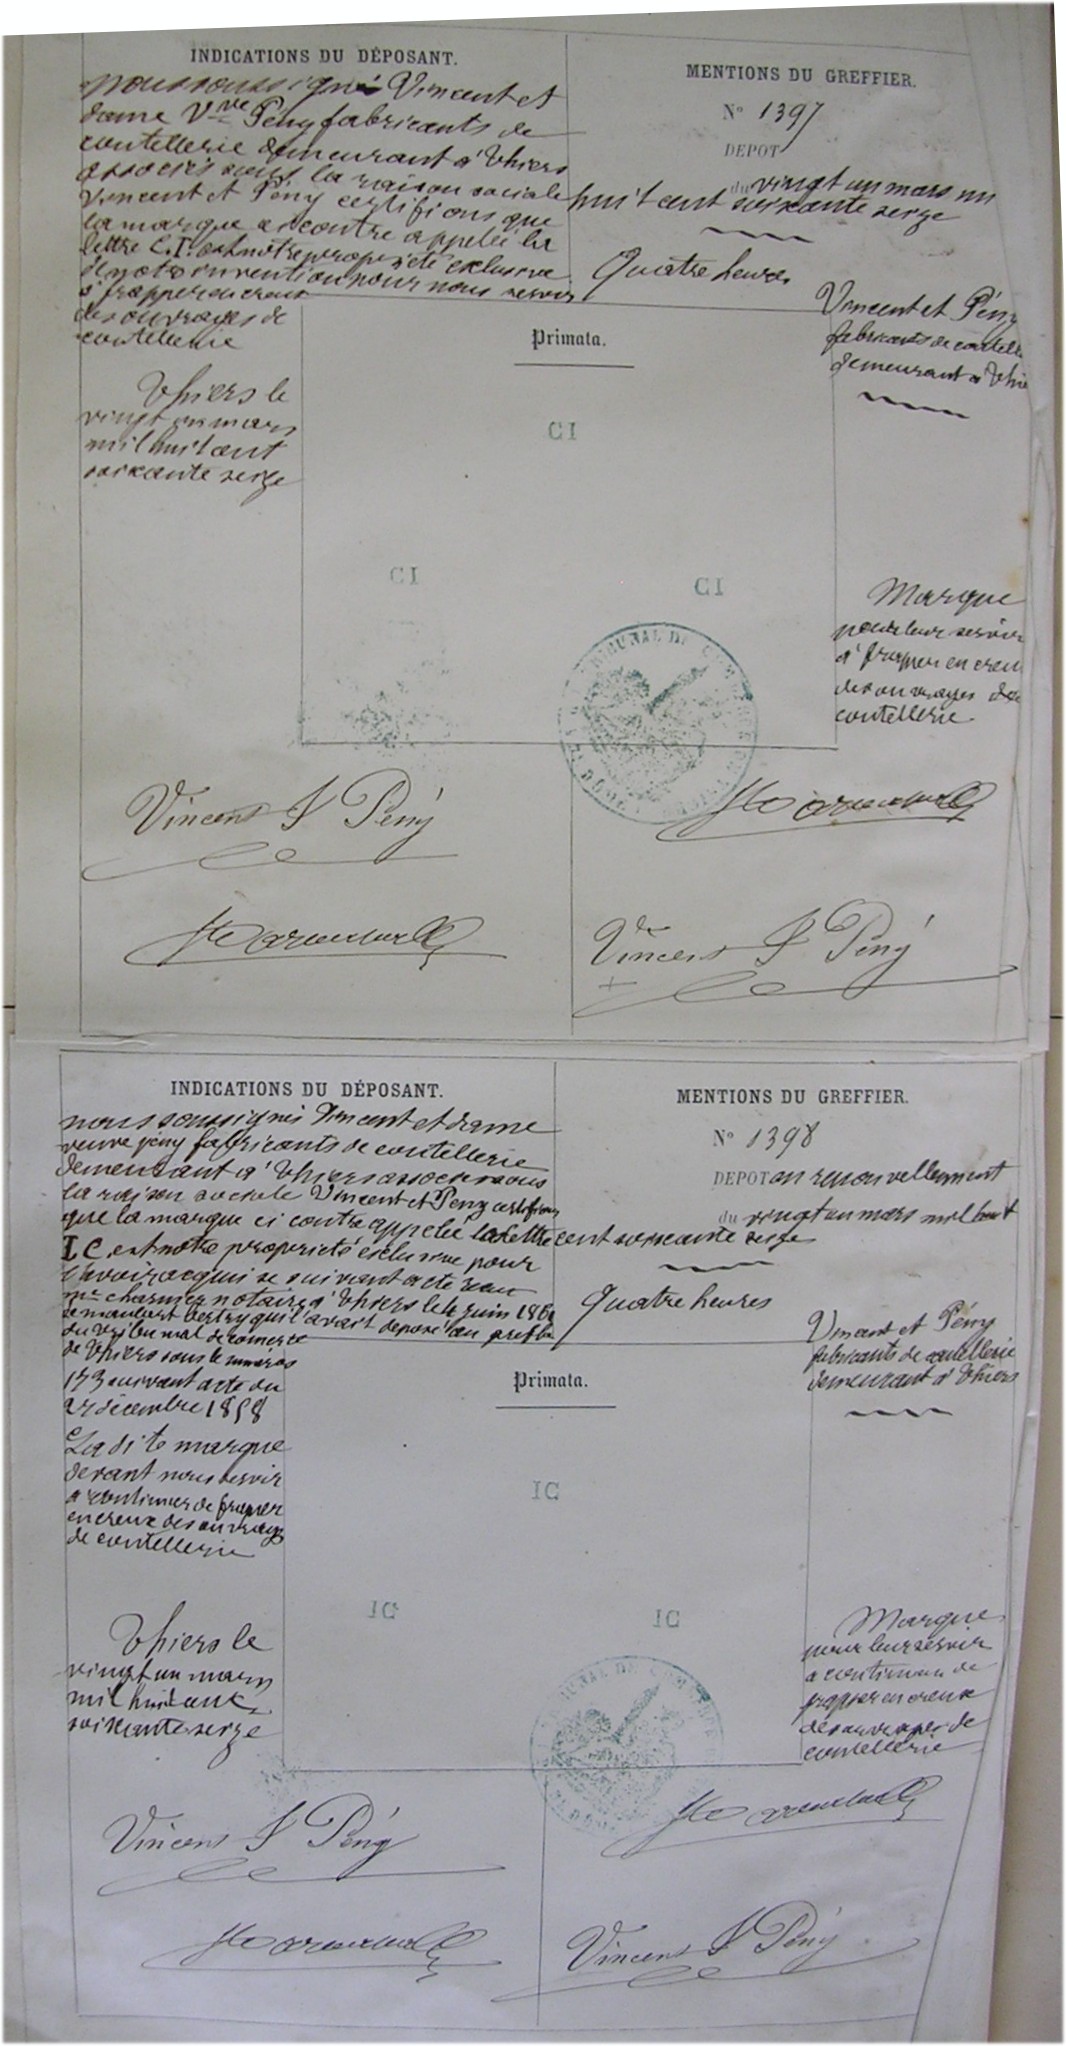 INDICATIONS DU DÉPOSANT.
nous soussignés Vincent et
dame Vve Pény fabricants de
coutellerie demeurant a Thiers
associés sous la raison sociale
Vincent et Pény certifions que
la marque ci contre appelée la
lettre C.I. est notre propriété exclusive
de notre invention pour nous servir
a frapper en creux
des ouvrages de
coutellerie
Thiers le
vingt un mars
mil huit cent
soixante seize
MENTIONS DU GREFFIER.
No 1397
DEPOT
du vingt un mars mil
huit cent soixante seize
Quatre heures
Vincent et Pény
fabricants de coutell
demeurant a Thie
Primata.
CI
CI
CI
Marque
pour leur servir
a frapper en creu
des ouvrages de
coutellerie
TRIBUNAL DE COMMERCE
Vincent & Pény
Vincent & Pény
INDICATIONS DU DÉPOSANT.
nous soussignés Vincent et dame
veuve pény fabricants de coutellerie
demeurant a Thiers associés sous
la raison sociale Vincent et Peny certifions
que la marque ci contre appelée la lettre
IC est notre propriété exclusive pour
l'avoir acquise suivant acte reçu
me notaire a Thiers le 4 juin 186
qui l'avait déposé au greffe
du tribunal de comerce
de Thiers sous le numéros
173 suivant acte du
27 décembre 1858
La dite marque
devant nous servir
a continuer de frapper
en creux des ouvrages
de coutellerie
Thiers le
vingt un mars
mil huit cent
soixante seize
MENTIONS DU GREFFIER.
No 1398
DEPOT en renouvellement
du vingt un mars mil huit
cent soixante seize
Quatre heures
Vincent et Pény
fabricants de coutellerie
demeurant a Thiers
Primata.
IC
IC
IC
Marque
pour leur servir
a continuer de
frapper en creux
des ouvrages de
coutellerie
TRIBUNAL DE COMMERCE
Vincent & Pény
Vincent & Pény